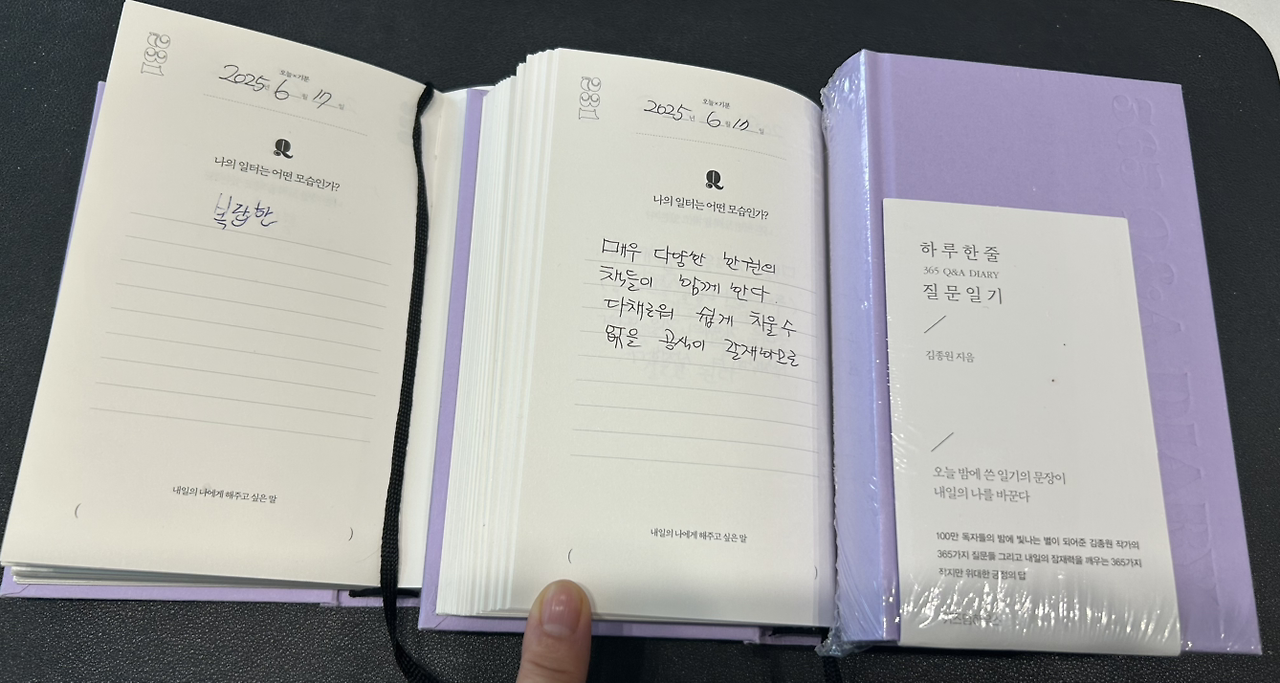 287
오늘×기분
2025년 6월 17일
나의 일터는 어떤 모습인가?
복잡한
내일의 나에게 해주고 싶은 말
( )
287
오늘×기분
2025년 6월 17일
나의 일터는 어떤 모습인가?
매우 다양한 만권의
책들이 함께 한다.
다채로워 쉽게 치울 수
없을 공식이 잘재하므로
내일의 나에게 해주고 싶은 말
( )
하루 한 줄
365 Q&A DIARY
질문 일기
김종원 지음
오늘 밤에 쓴 일기의 문장이
내일의 나를 바꾼다
100만 독자들의 밤에 빛나는 별이 되어준 김종원 작가의
365가지 질문들 그리고 내일의 잠재력을 깨우는 365가지
작지만 위대한 긍정의 답